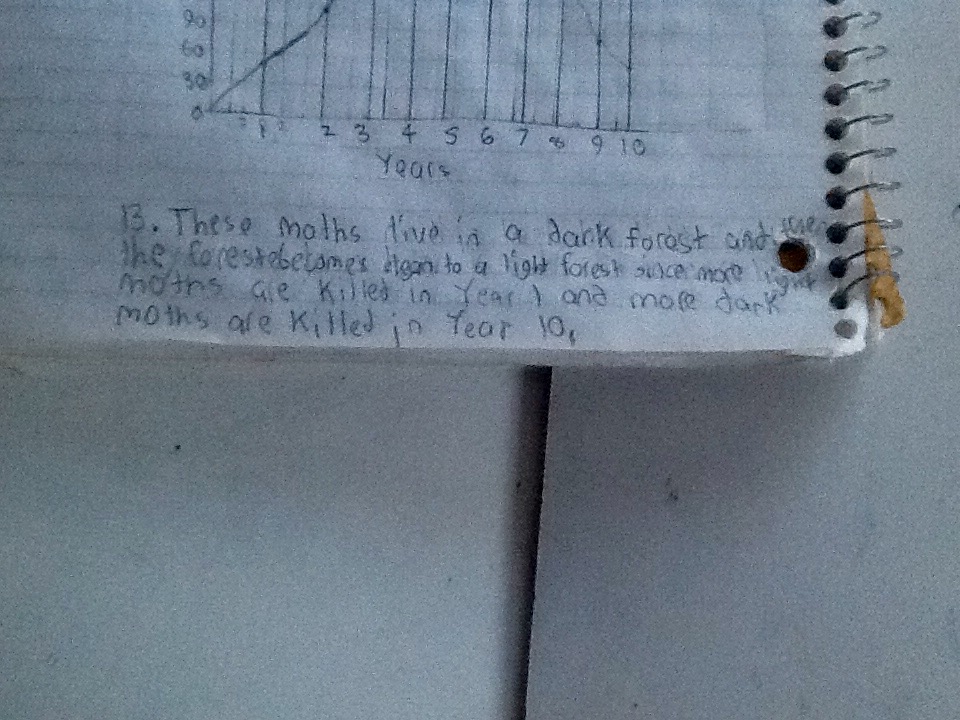 90
60
30
0
1 2 3 4 5 6 7 8 9 10
Years
13. These moths live in a dark forest and then
the forest becomes again to a light forest since more light
moths are killed in Year 1 and more dark
moths are killed in Year 10.